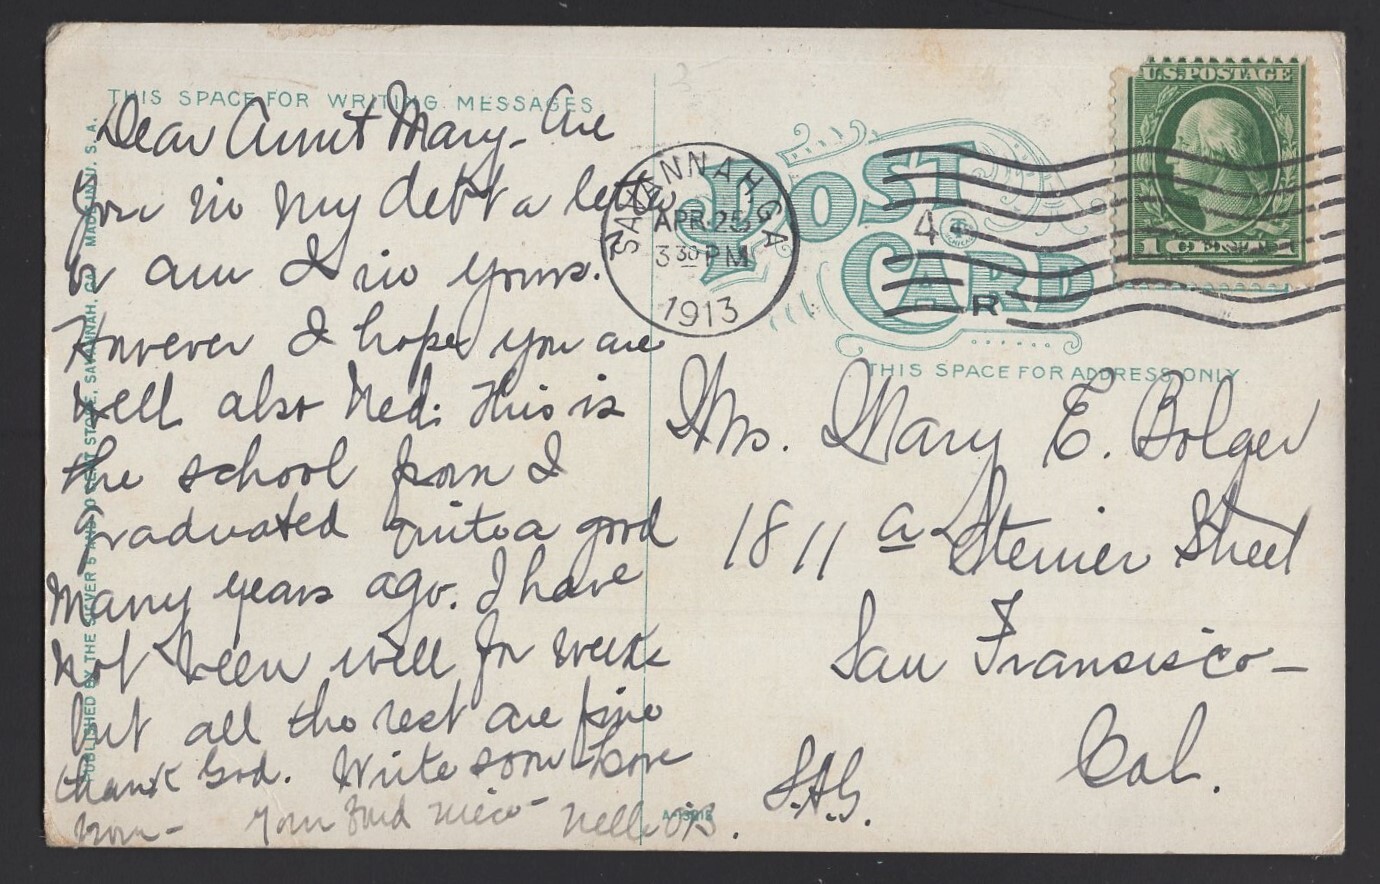 THIS SPACE FOR WRITING MESSAGES
Dear Aunt Mary - Are
you in my debt a letter
or am I in yours.
However I hope you are
well also Ned. This is
the school from I
graduated quite a good
many years ago. I have
not been well for weeks
but all the rest are fine
thank God. Write soon Love
from - Your fond niece - Nell
PUBLISHED BY THE SILVER 5 AND 10 CENT STORE, SAVANNAH, GA. MADE IN U. S. A.
SAVANNAH, GA
APR 25
3 30 PM
1913
POST CARD
4
R
U.S. POSTAGE
1 CENT 1
THIS SPACE FOR ADDRESS ONLY
Mrs. Mary E. Bolger
1811 a Steiner Street
San Fransisco -
Cal.
S.A.G.